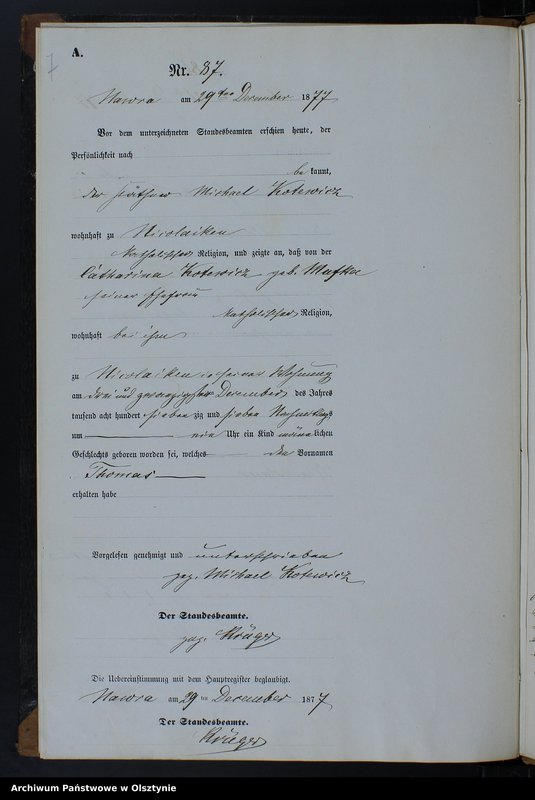 A.
7
Nr. 87.
Nawra am 29ten December 1877
Vor dem unterzeichneten Standesbeamten erschien heute, der
Persönlichkeit nach
bekannt,
der Käthner Michael Kotewicz
wohnhaft zu Nicolaiken
katholischer Religion, und zeigte an, daß von der
Catharina Kotewicz geb. Mufka
seiner Ehefrau
katholischer Religion,
wohnhaft bei ihm
zu Nicolaiken in seiner Wohnung
am drei und zwanzigsten December des Jahres
tausend acht hundert siebenzig und sieben Nachmittags
um ein Uhr ein Kind männlichen
Geschlechts geboren worden sei, welches den Vornamen
Thomas
erhalten habe
Vorgelesen genehmigt und unterschrieben
gez. Michael Kotewicz
Der Standesbeamte.
gez. Krüger
Die Uebereinstimmung mit dem Hauptregister beglaubigt.
Nawra am 29ten December 1877
Der Standesbeamte.
Krüger
Archiwum Państwowe w Olsztynie